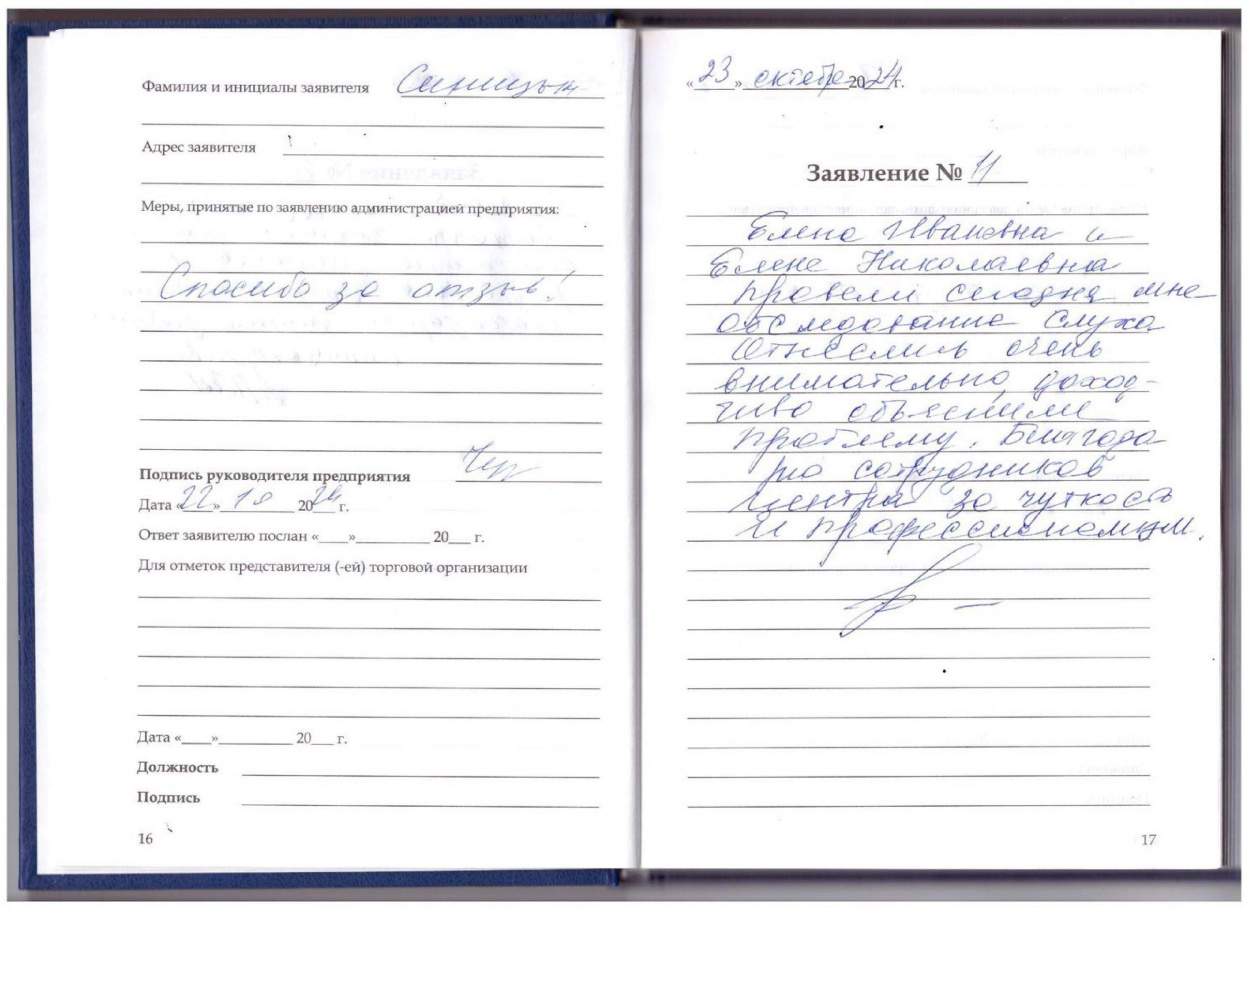 Фамилия и инициалы заявителя Синицын
Адрес заявителя
Меры, принятые по заявлению администрацией предприятия:
Спасибо за отзыв!
Подпись руководителя предприятия
Дата «22» 10 2024 г.
Ответ заявителю послан «___»__________ 20___ г.
Для отметок представителя (-ей) торговой организации
Дата «____»__________ 20___ г.
Должность
Подпись
16
«23» октября 2024 г.
Заявление № 11
Елена Ивановна и
Елене Николаевна
провели сегодня мне
обследование слуха
Отнеслись очень
внимательно, доход-
чиво объяснили
проблему. Благода
рю сотрудников
центра за чуткость
и профессионализм.
17